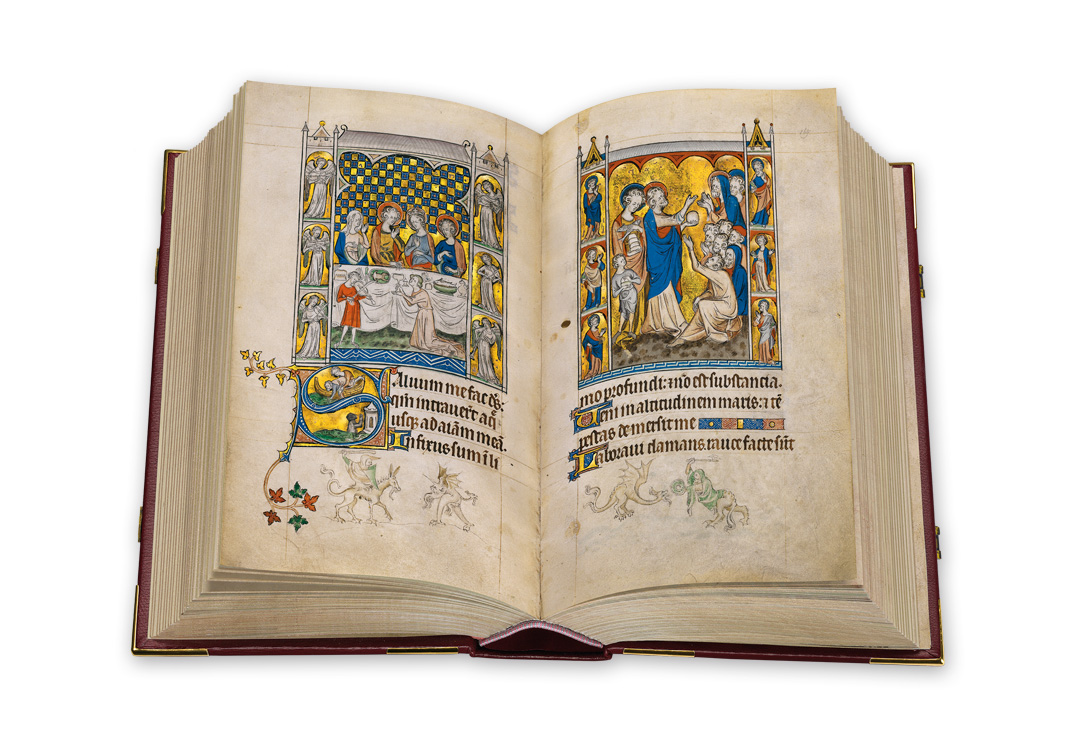 Saluum me fac ds̄:
qm̄ intrauer̄t aq̄
usq; ad aīam meā.
Infixus sum ī li
mo profundi: ⁊ nō est substancia.
Ueni in altitudinem maris: ⁊ tē
pestas demersit me
Laboraui clamans. rauce facte sūt